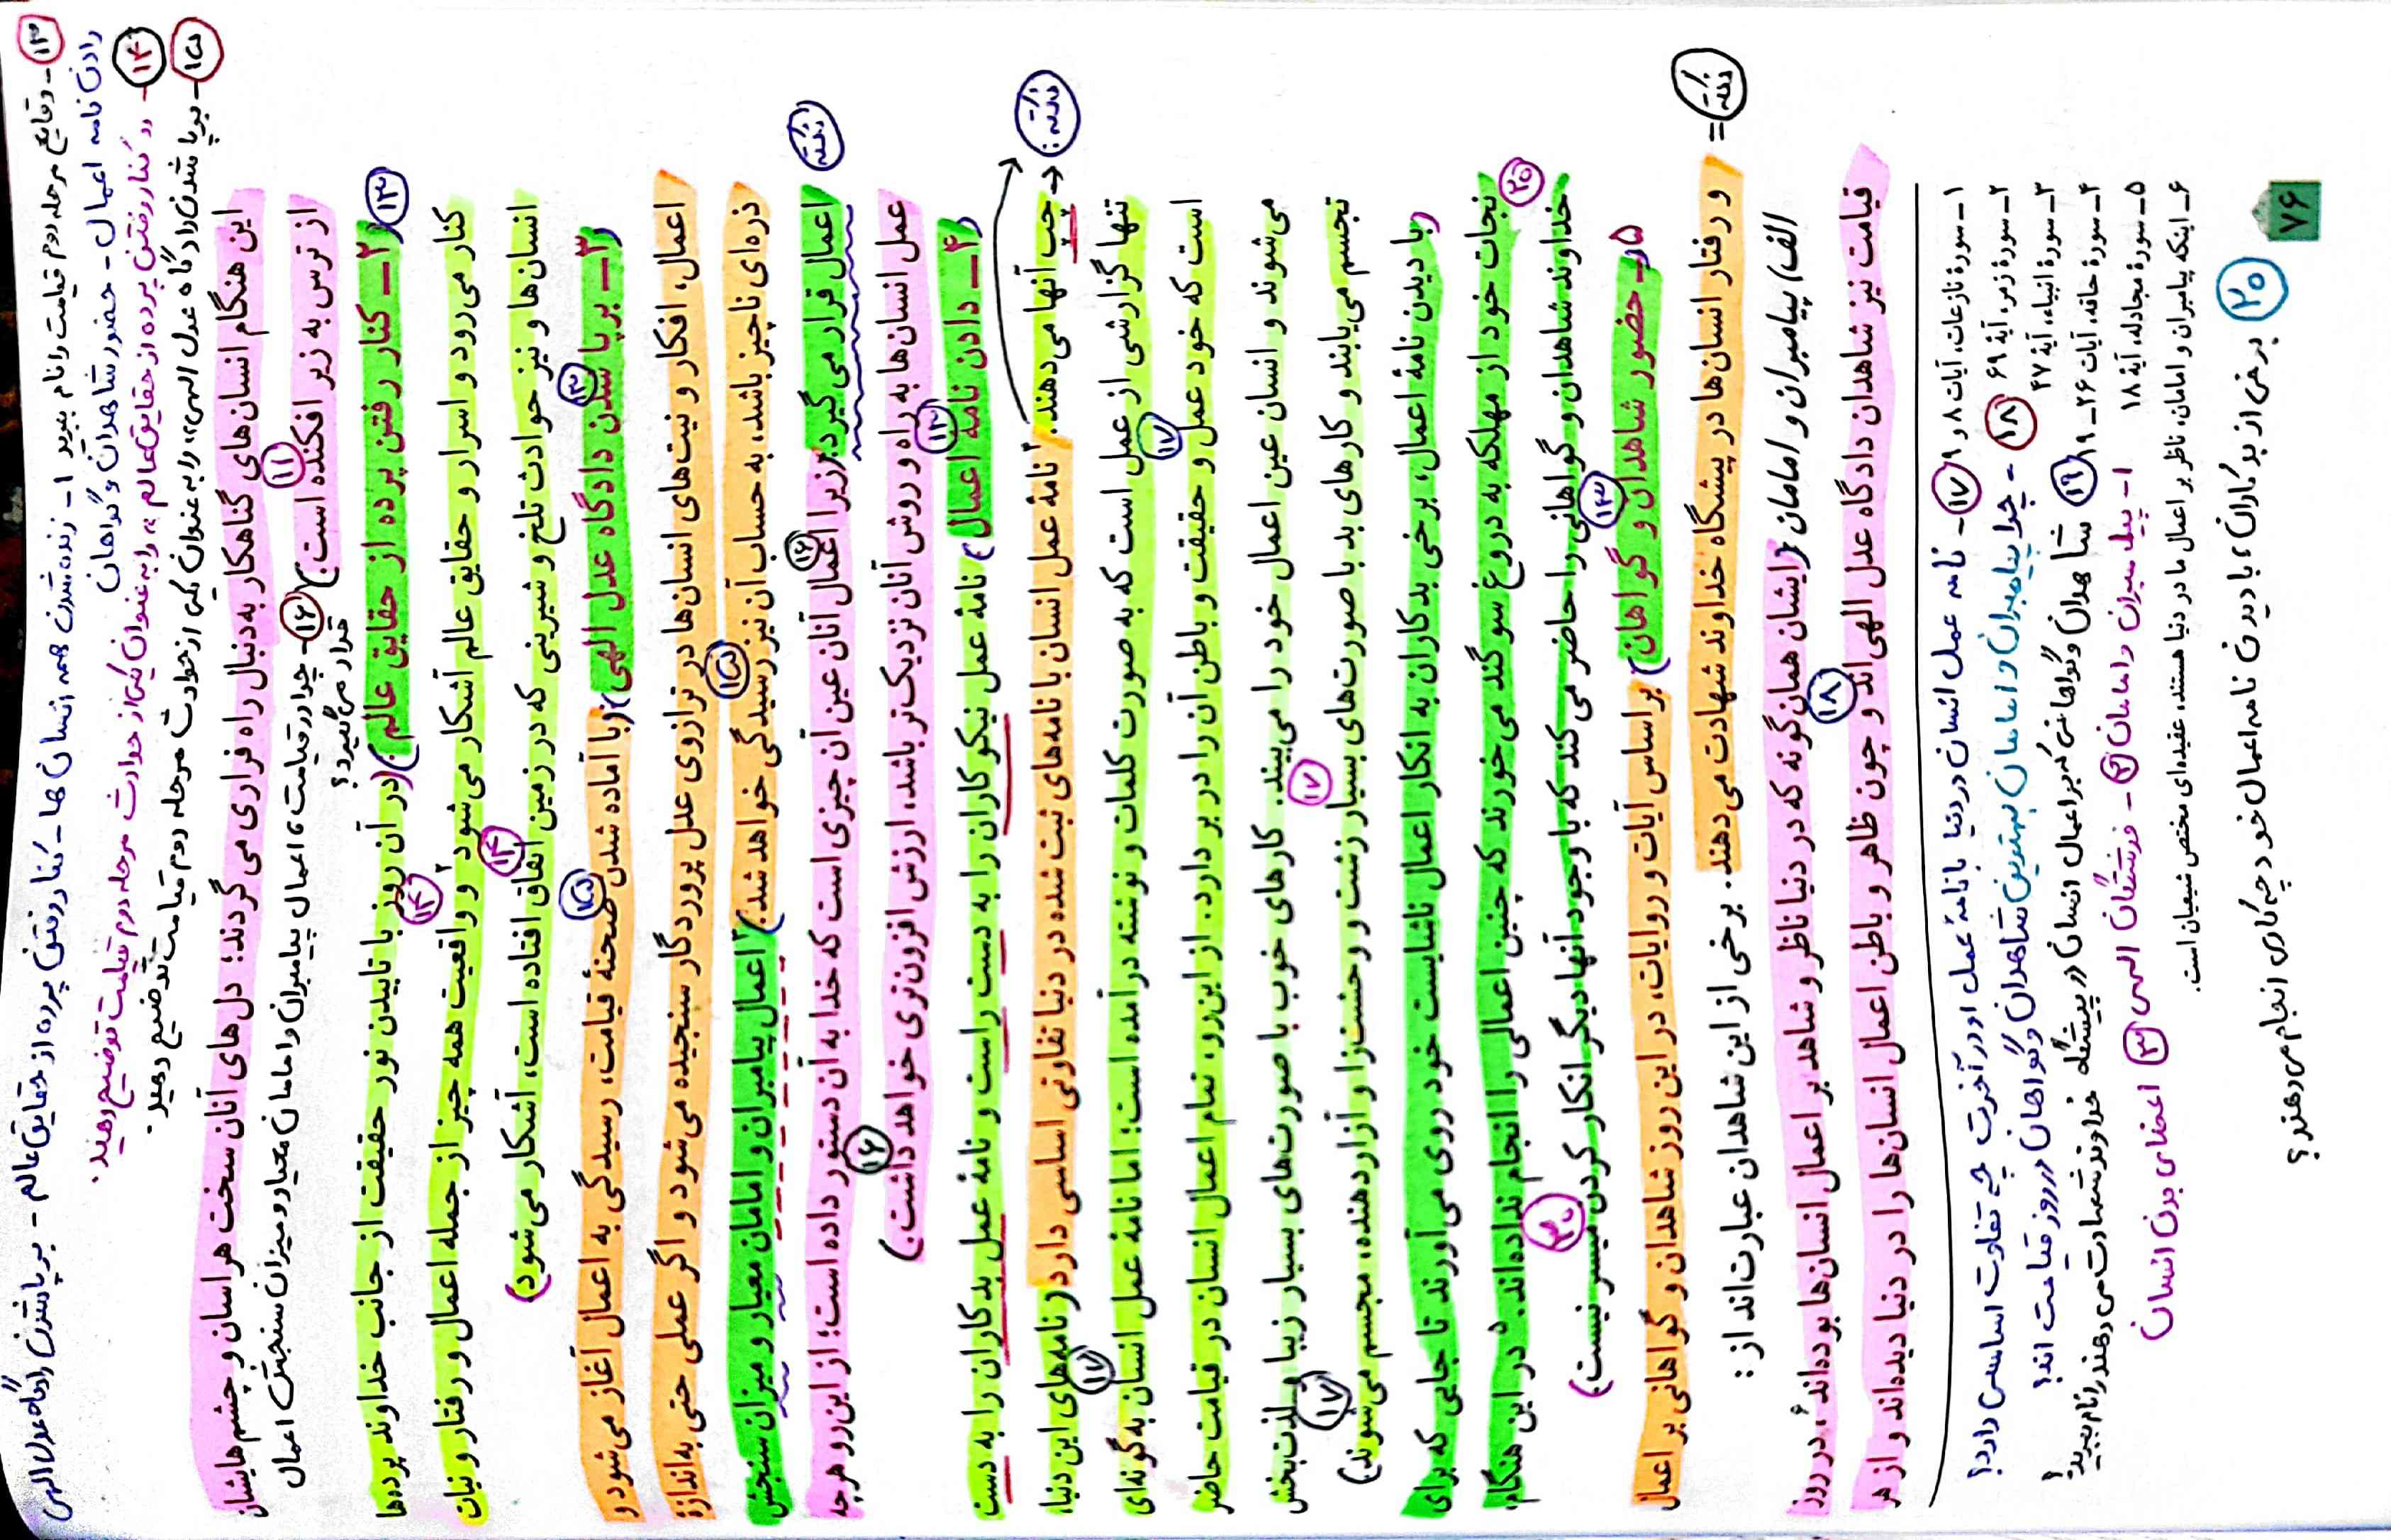 ۱۳- وقایع مرحله دوم قیامت را نام ببرید ۱- زنده شدن همه انسان ها - کنار رفتن پرده از حقایق عالم - برپا شدن دادگاه عدل الهی
دادن نامه اعمال - حضور شاهدان و گواهان
۱۴- «کنار رفتن پرده از حقایق عالم» را به عنوان یکی از حوادث مرحله دوم قیامت توضیح دهید.
۱۵- برپا شدن دادگاه عدل الهی» را به عنوان یکی از حوادث مرحله دوم قیامت توضیح دهید.
این هنگام انسان‌های گناهکار به دنبال راه فراری می‌گردند؛ دل‌های آنان سخت هراسان و چشم‌هایشان
از ترس به زیر افکنده است.) ۱۱
۱۶- چرا در قیامت، اعمال پیامبران و امامان معیار و میزان سنجش اعمال
قرار می‌گیرد؟
۲- کنار رفتن پرده از حقایق عالم) ۱۳ (در آن روز با تابیدن نور حقیقت از جانب خداوند پرده‌ها
کنار می‌رود و اسرار و حقایق عالم آشکار می‌شود ۲ و واقعیت همه چیز از جمله اعمال و رفتار و نیات
انسان‌ها و نیز حوادث تلخ و شیرینی که در زمین اتفاق افتاده است، آشکار می‌شود) ۱۴
۳- برپا شدن دادگاه عدل الهی) ۱۳ (با آماده شدن صحنهٔ قیامت، رسیدگی به اعمال آغاز می‌شود و ۱۵
اعمال، افکار و نیت‌های انسان‌ها در ترازوی عدل پروردگار سنجیده می‌شود و اگر عملی حتی به اندازهٔ
ذره‌ای ناچیز باشد، به حساب آن نیز رسیدگی خواهد شد.) ۳ اعمال پیامبران و امامان معیار و میزان سنجش ۱۵
نکته اعمال قرار می‌گیرد؛ (زیرا اعمال آنان عین آن چیزی است که خدا به آن دستور داده است؛ از این رو هرچه ۱۶
عمل انسان‌ها به راه و روش آنان نزدیک‌تر باشد، ارزش افزون‌تری خواهد داشت.) ۱۶
۴- دادن نامهٔ اعمال) ۱۳ نامهٔ عمل نیکوکاران را به دست راست و نامهٔ عمل بدکاران را به دست
نکته: چپ آنها می‌دهند. ۴ نامهٔ عمل انسان با نامه‌های ثبت شده در دنیا تفاوتی اساسی دارد (نامه‌های این دنیا،
تنها گزارشی از عمل است که به صورت کلمات و نوشته درآمده است؛ اما نامهٔ عمل انسان به گونه‌ای ۱۷
است که خود عمل و حقیقت و باطن آن را در بر دارد. از این رو، تمام اعمال انسان در قیامت حاضر ۱۷
می‌شوند و انسان عین اعمال خود را می‌بیند. کارهای خوب با صورت‌های بسیار زیبا و لذت‌بخش
تجسم می‌یابند و کارهای بد با صورت‌های بسیار زشت و وحشت‌زا و آزاردهنده، مجسم می‌شوند) ۱۷
(با دیدن نامهٔ اعمال، برخی بدکاران به انکار اعمال ناشایست خود روی می‌آورند تا جایی که برای
نجات خود از مهلکه به دروغ سوگند می‌خورند که چنین اعمالی را انجام نداده‌اند. ۵ در این هنگام،
خداوند شاهدان و گواهانی را حاضر می‌کند که با وجود آنها دیگر انکار کردن میسر نیست.) ۲۰
۵- حضور شاهدان و گواهان) ۱۳ بر اساس آیات و روایات، در این روز شاهدان و گواهانی بر اعمال
نکته = و رفتار انسان‌ها در پیشگاه خداوند شهادت می‌دهند. برخی از این شاهدان عبارت‌اند از:
الف) پیامبران و امامان (ایشان همان گونه که در دنیا ناظر و شاهد بر اعمال انسان‌ها بوده‌اند ۶، در روز
قیامت نیز شاهدان دادگاه عدل الهی‌اند و چون ظاهر و باطن اعمال انسان‌ها را در دنیا دیده‌اند و از هر ۱۸
۱- سورهٔ نازعات، آیات ۸ و ۹
۲- سورهٔ زمر، آیهٔ ۶۹
۳- سورهٔ انبیاء، آیهٔ ۴۷
۴- سورهٔ حاقه، آیات ۲۶-۱۹
۵- سورهٔ مجادله، آیهٔ ۱۸
۶- اینکه پیامبران و امامان، ناظر بر اعمال ما در دنیا هستند، عقیده‌ای مختص شیعیان است.
۱۷- نامه عمل انسان در دنیا با نامهٔ عمل او در آخرت چه تفاوت اساسی دارد؟
۱۸- چرا پیامبران و امامان بهترین شاهدان و گواهان در روز قیامت اند؟
۱۹ شاهدان و گواهانی که بر اعمال انسان در پیشگاه خداوند شهادت می دهند را نام ببرید؟
۱- پیامبران و امامان ۲- فرشتگان الهی ۳ اعضای بدن انسان
۷۶
۲۰ برخی از بدکاران، با دیدن نامه اعمال خود چه کاری انجام می دهند؟